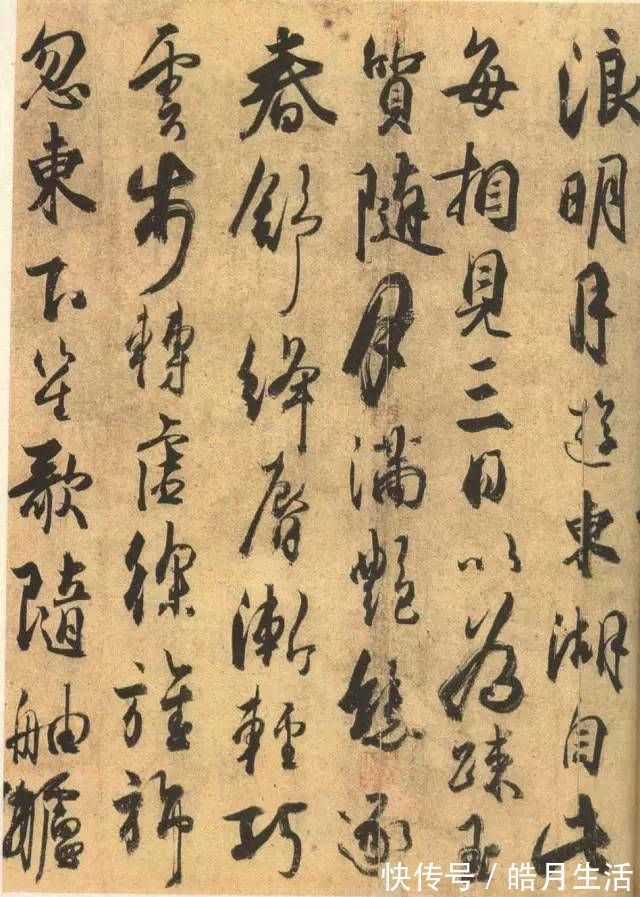 浪明月遊東湖自此
每相見三日以為踈玉
質隨月滿艷態逐
春舒絳脣漸輕巧
雲步轉虛徐旌旆
忽東下笙歌隨舳艫
快传号 / 皓月生活